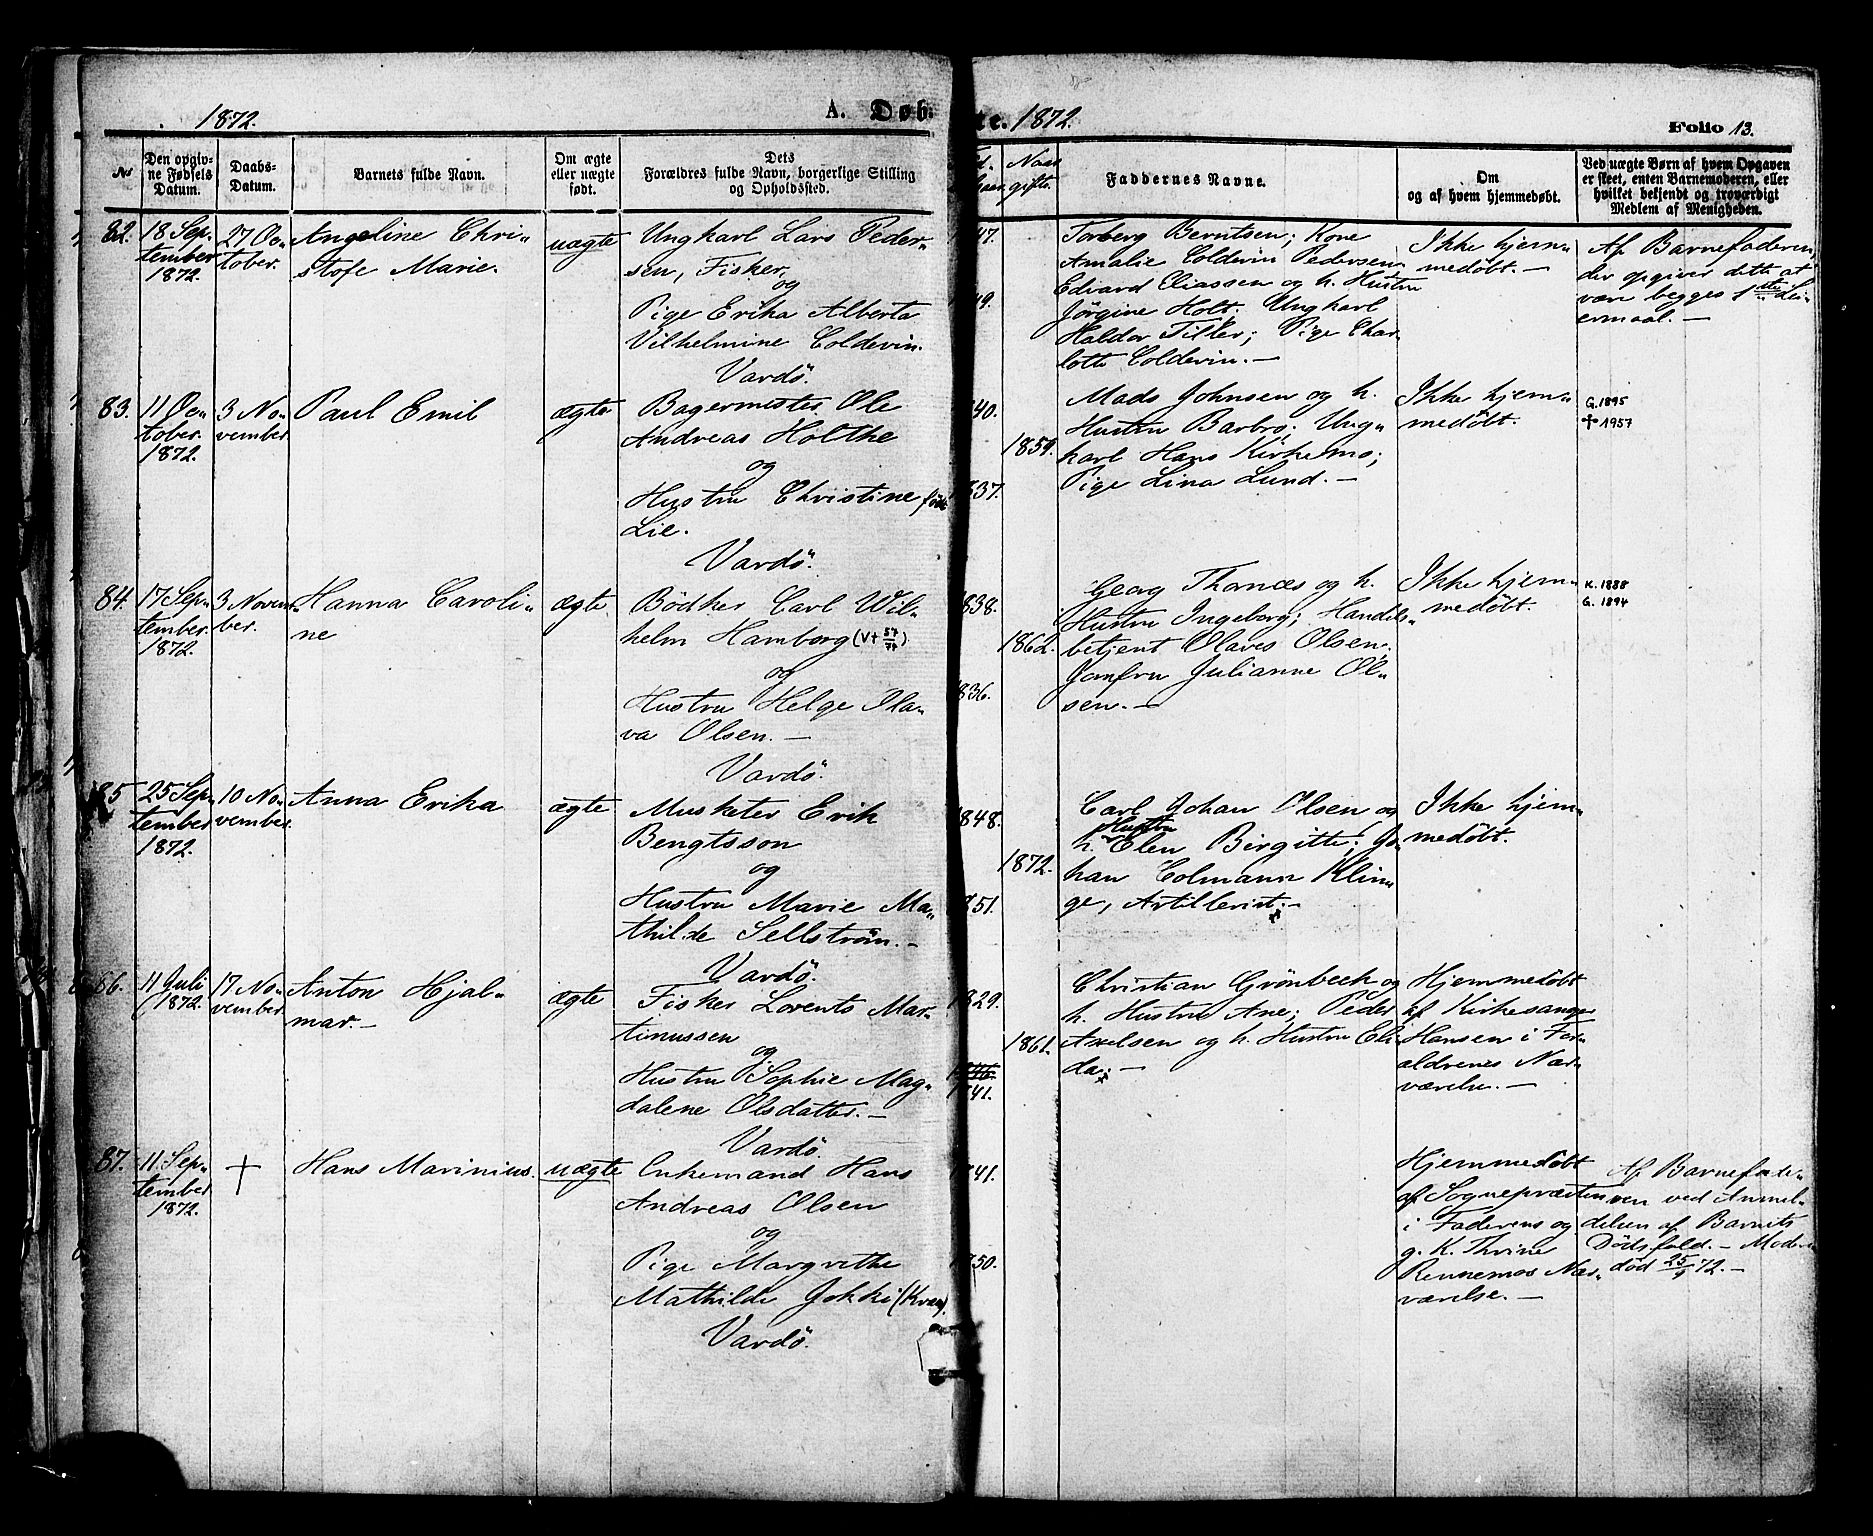 1872.
A. Døb-
te. 1872.
Folio 13.
No
Den opgiv-
ne Fødsels
Datum.
Daabs-
Datum.
Barnets fulde Navn.
Om ægte
eller uægte
født.
Dets
Forældres fulde Navn, borgerlige Stilling
og Opholdssted.
Naar
gifte.
Faddernes Navne.
Om
og af hvem hjemmedøbt.
Ved uægte Børn af hvem Opgaven
er skeet, enten Barnemoderen, eller
hvilket bekjendt og troværdigt
Medlem af Menigheden.
82.
18 Sep-
tember
1872.
27 Oc-
tober.
Angeline Chri-
stofe Marie.
uægte
Ungkarl Lars Peder-
sen, Fisker,
og
Pige Erika Alberta
Vilhelmine Coldevin.
Vardö.
47.
49.
Torberg Berntsen; Kone
Amalie Coldevin Pedersen
Edvard Eliassen og h. Hustru
Jörgine Holt; Ungkarl
Haldor Tiller; Pige Char-
lotte Coldevin. —
Ikke hjem-
medöbt. —
Af Barnefaderen,
der opgiver dette at
være begges 1ste Lei-
ermaal. —
83.
11 Oc-
tober.
1872.
3 No-
vember.
Paul Emil
ægte
Bagermester Ole
Andreas Holthe
og
Hustru Christine född
Lie.
Vardö.
40.
1859.
837.
Mads Johnsen og h.
Hustru Barbro; Ung-
karl Hans Kirkemo;
Pige Lina Lund. —
Ikke hjem-
medöbt.
G. 1895
† 1957
84.
17 Sep-
tember.
1872.
3 Novem-
ber.
Hanna Caroli-
ne
ægte
Bödker Carl Wil-
helm Hamborg (V† 57/74)
og
Hustru Helge Ola-
va Olsen. —
Vardö.
838.
1862.
836.
Georg Thanæs og h.
Hustru Ingeborg; Handels-
betjent Olaves Olsen;
Jomfru Julianne Ol-
sen. —
Ikke hjem-
medöbt.
K. 1888
G. 1894
85
25 Sep-
tember
1872.
10 No-
vember.
Anna Erika
ægte
Musketer Erik
Bengtsson
og
Hustru Marie Ma-
thilde Sellström. —
Vardö.
1848.
1872.
851.
Carl Johan Olsen og
Hustru
h. Elen Birgitte; Jo-
han Colmann Klin-
ge, Artillerist. —
Ikke hjem-
medöbt.
86.
11 Juli
1872.
17 No-
vember
Anton Hjal-
mar. —
ægte
Fisker Lorents Mar-
tinussen
og
Hustru Sophie Mag-
dalene Olsdatter. —
Vardö.
829.
1861.
1841.
Christian Grönbeck og
h. Hustru Ane; Peder
Axelsen og h. Hustru Eli-
da. —
Hjemmedöbt
af Kirkesanger
Hansen i For-
ældrenes Nær-
værelse. —
87.
11 Sep-
tember
1872.
†
Hans Marinius.
uægte
Enkemand Hans
Andreas Olsen
og
Pige Margrethe
Mathilde Jokki (Kvæn).
Vardö.
41.
50.
Hjemmedöbt
af Sognepræsten
i Faderens og
g. K. Thrine
Rennemos Nær-
værelse. —
Af Barnefade-
ren ved Anmel-
delsen af Barnets
Dödsfald. — Moder
död 25/9 72. —